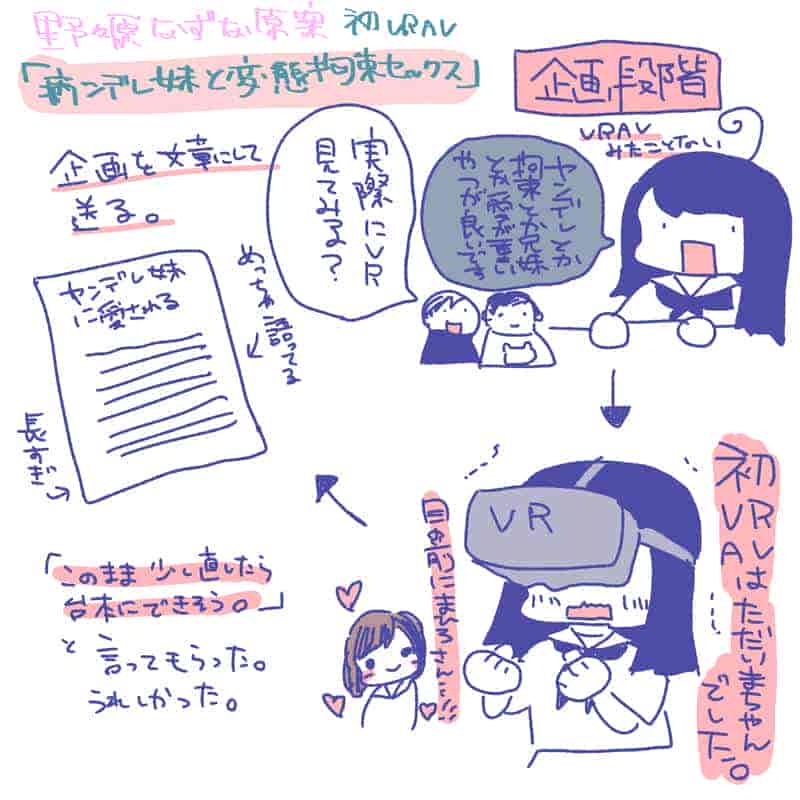 野々原なずな原案 初VRAV
「病ンデレ妹と変態拘束セックス」
企画段階
VRAV
みたことない
ヤンデレとか
拘束とか兄妹
とか愛が重い
やつが良いです
実際にVR
見てみる?
初VRAVはただいまちゃんでした。
VR
目の前にまひろさん…!!
企画を文章にして
送る。
ヤンデレ妹
に愛される
めっちゃ語ってる
長すぎ
「このまま少し直したら
台本にできそう。」
と言ってもらった。
うれしかった。